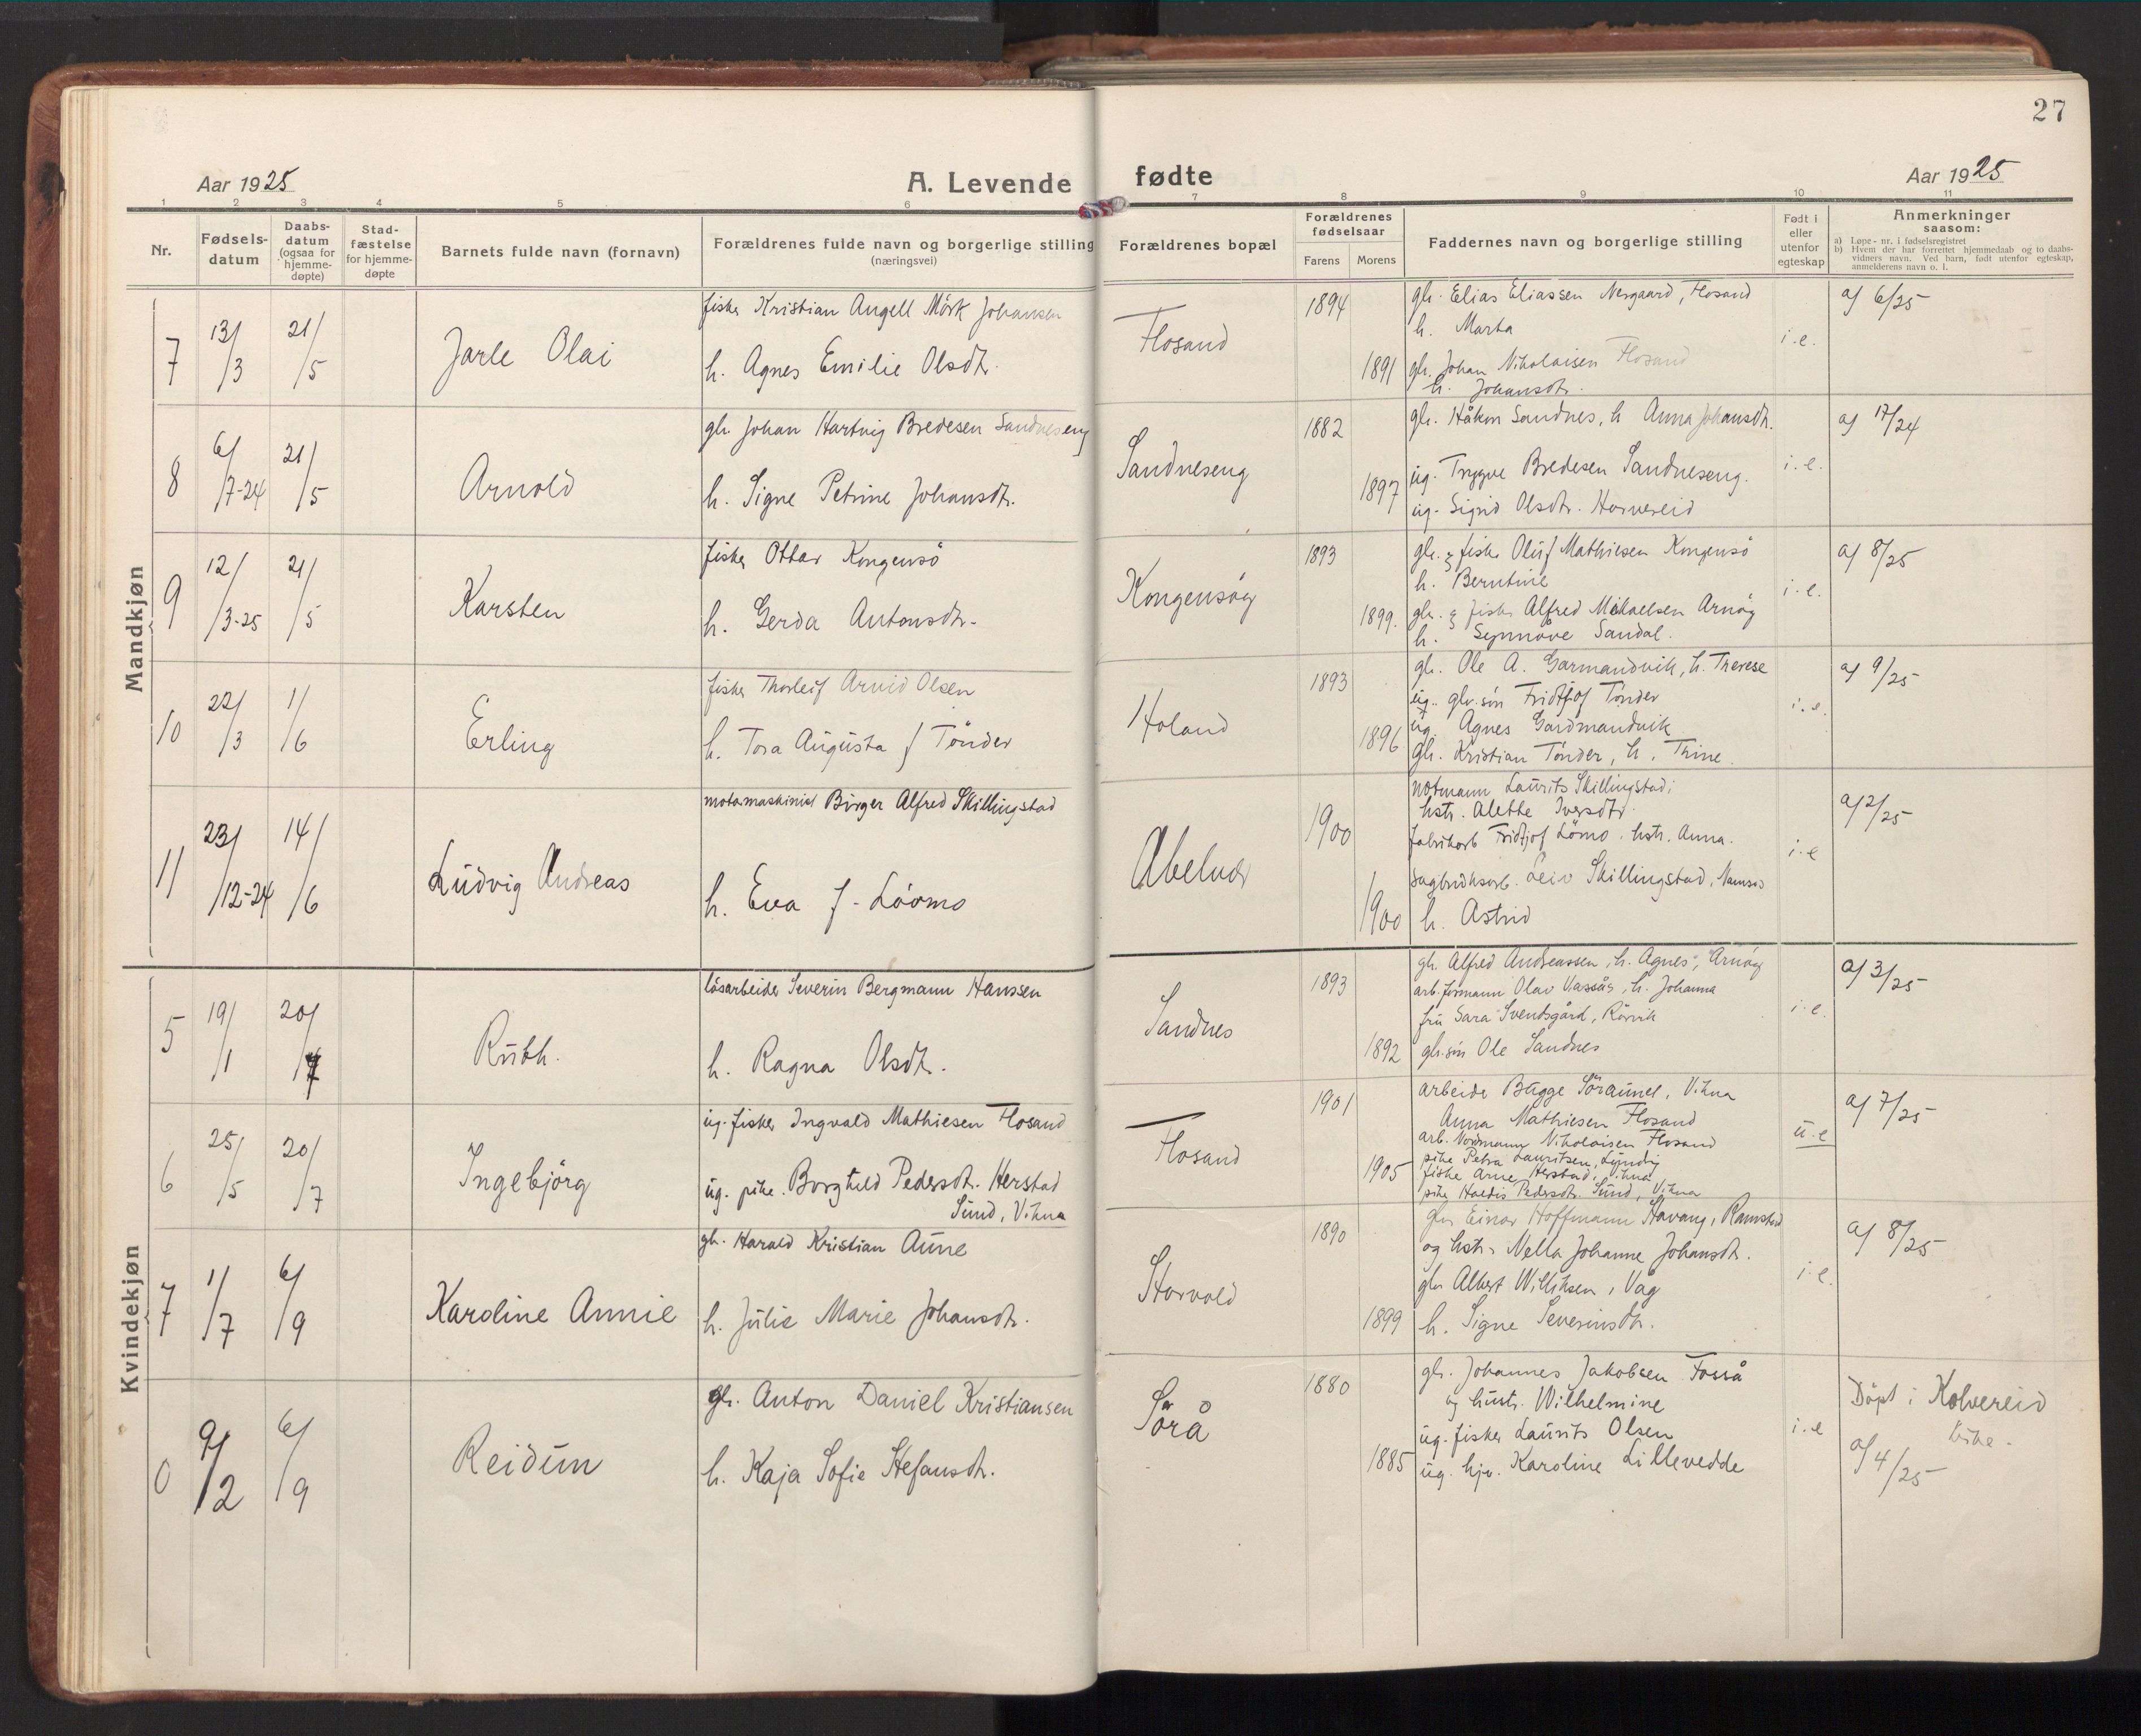 27
Aar 1925
A. Levende fødte
Aar 1925
1 2 3 4 5 6 7 8 9 10 11
Nr.
Fødsels-
datum
Daabs-
datum
(ogsaa for
hjemme-
døpte)
Stad-
fæstelse
for hjemme-
døpte
Barnets fulde navn (fornavn)
Forældrenes fulde navn og borgerlige stilling
(næringsvei)
Forældrenes bopæl
Forældrenes
fødselsaar
Farens Morens
Faddernes navn og borgerlige stilling
Født i
eller
utenfor
egteskap
Anmerkninger
saasom:
a) Løpe-nr. i fødselsregistret
b) Hvem der har forrettet hjemmedaab og to daabs-
vidners navn. Ved barn, født utenfor egteskap,
anmelderens navn o. l.
Mandkjøn
7 13/3 21/5 Jarle Olai
fisker Kristian Angell Mörk Johansen
h. Agnes Emilie Olsdtr.
Flosand
1894
1891
gbr. Elias Eliassen Nergaard, Flosand
h. Marta
gbr. Johan Nikolaisen Flosand
h. Johansdtr.
i.e.
a) 6/25
8 6/7-24 21/5 Arnold
gbr. Johan Hartvig Bredesen Sandneseng
h. Signe Petrine Johansdtr.
Sandneseng
1882
1897
gbr. Håkon Sandnes, h Anna Johansdtr.
ug. Trygve Bredesen Sandneseng.
ug. Sigrid Olsdtr. Horvereid
i.e.
a) 17/24
9 12/3-25 21/5 Karsten
fisker Ottar Kongensö
h. Gerda Antonsdtr.
Kongensöy
1893
1899.
gbr. & fisker Oluf Mathiesen Kongensö
h. Berntine
gbr. & fisker Alfred Mikaelsen Arnöy
h. Synnöve Sandal.
i.e.
a) 8/25
10 22/3 1/6 Erling
fisker Thorleif Arvid Olsen
h. Tora Augusta f Tönder
Holand
1893
1896
gbr. Ole A. Garmandvik, h. Therese
ug. gbr.sön Fridtjof Tönder
ug. Agnes Gardmandvik
gbr. Kristian Tönder, h. Trine.
i.e.
a) 9/25
11 23/12-24 14/6 Ludvig Andreas
motormaskinist Birger Alfred Skillingstad
h. Eva f. Löömo
Abelvær
1900
1900
notmann Laurits Skillingstad;
hstr. Alethe Iversdtr.
fabrikarb Fridtjof Lömo. hstr. Anna.
sagbruksarb. Leiv Skillingstad, Namsos
h. Astrid
i.e
a) 2/25
Kvindekjøn
5 19/1 20/7 Ruth.
lösarbeider Severin Bergmann Hanssen
h. Ragna Olsdtr.
Sandnes
1893
1892
gbr. Alfred Andreassen, h. Agnes, Arnöy
arb.formann Olav Vassås, h. Johanna
fru Sara Svendsgård, Rörvik
gbr.sön Ole Sandnes
i.e.
a) 3/25
6 25/5 20/7 Ingebjörg
ug. fisker Ingvald Mathiesen Flosand
ug. pike. Borghild Pedersdtr. Herstad
Sund, Vikna
Flosand
1901
1905
arbeider Bugge Söraunet, Vikna
Anna Mathiesen Flosand
arb. Nordmann Nikolaisen Flosand
pike Petra Lauritsen,
fisker Arne Herstad, Vikna
pike Haldis Pedersdtr. Sund, Vikna
u.e
a) 7/25
7 1/7 6/9 Karoline Annie
gbr. Harald Kristian Aune
h. Julie Marie Johansdtr.
Storvold
1890
1899
gbr Einar Hoffmann Havang, Ramstad
og hstr. Nella Johanne Johansdtr.
gbr Albert Williksen, Våg
h. Signe Severinsdtr.
i.e.
a) 8/25
0 9/2 6/9 Reidun
gbr. Anton Daniel Kristiansen
h. Kaja Sofie Stefansdtr.
Sörå
1880
1885
gbr. Johannes Jakobsen Fosså
og hustr. Wilhelmine
ug. fisker Laurits Olsen
ug. hjv. Karoline Lillevedde
i.e
Döpt i Kolvereid
kirke.
a) 4/25